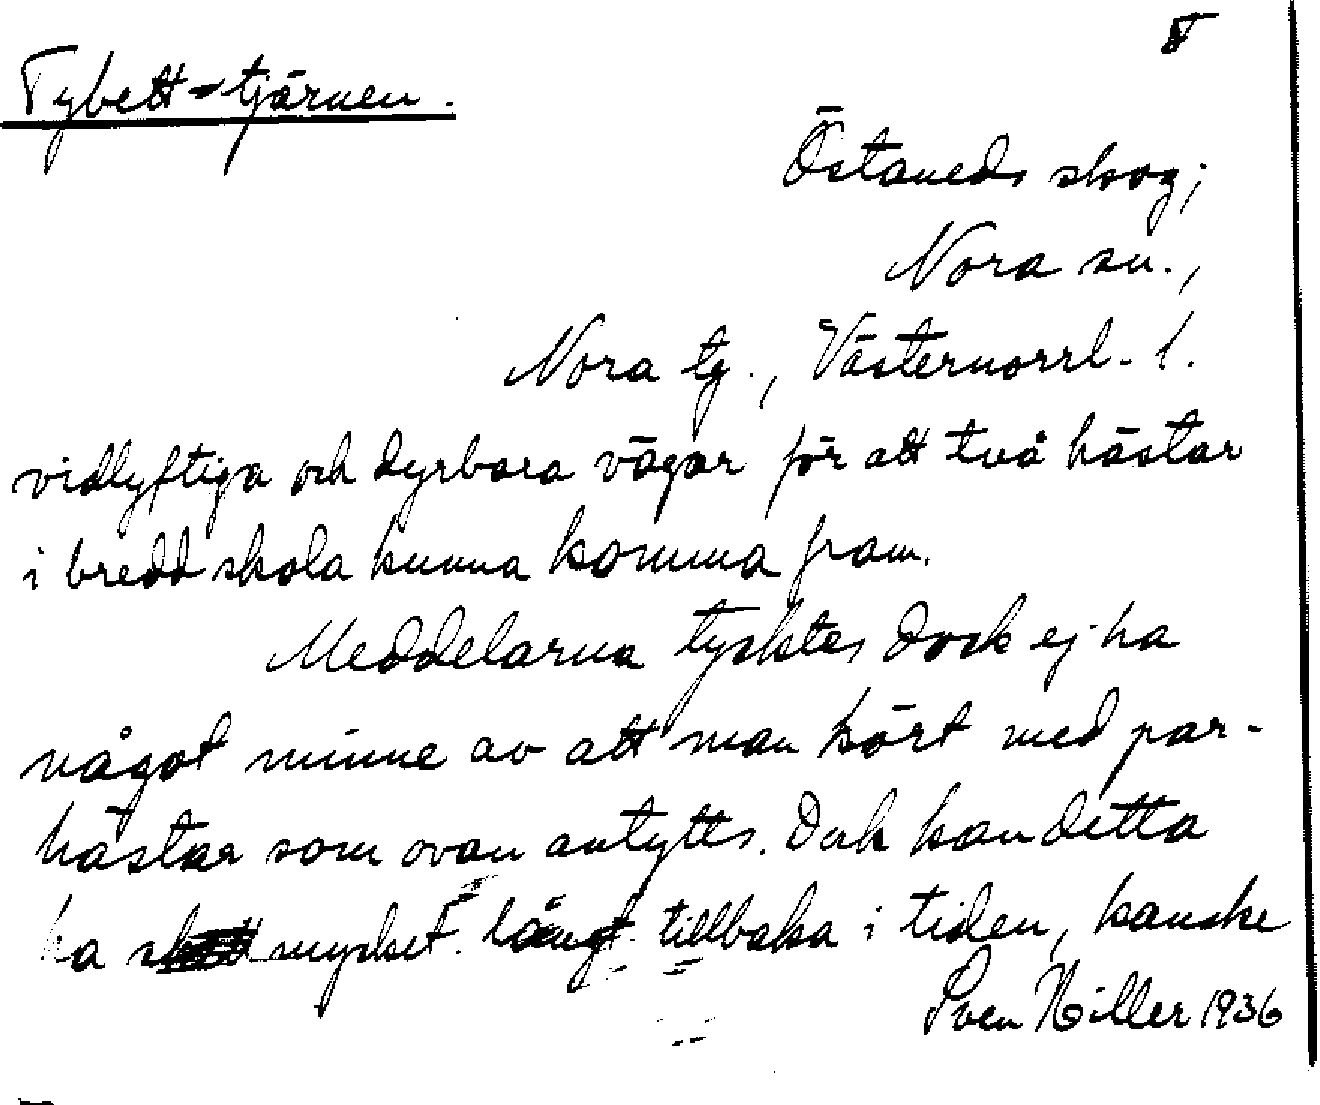 8
Tybett-tjärnen.
Östaneds skog;
Nora sn.,
Nora tg., Västernorrl. l.
vidlyftiga och dyrbara vägar för att två hästar
i bredd skola kunna komma fram.
Meddelarna tycktes dock ej ha
något minne av att man kört med par-
hästar som ovan antytts. Dock kan detta
ha mycket långt tillbaka i tiden, kanske
Sven Hiller 1936